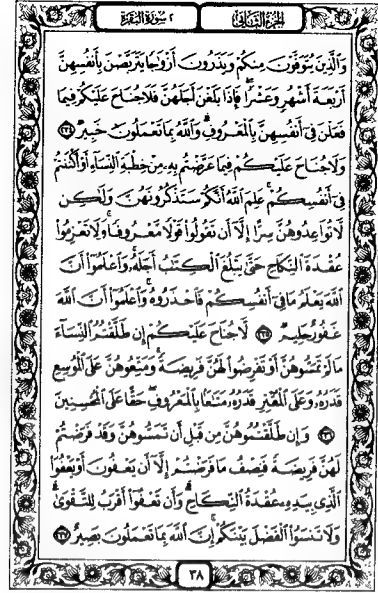 الجزء الثاني
٢ سورة البقرة
وَالَّذِينَ يُتَوَفَّوْنَ مِنكُمْ وَيَذَرُونَ أَزْوَٰجًا يَتَرَبَّصْنَ بِأَنفُسِهِنَّ
أَرْبَعَةَ أَشْهُرٍ وَعَشْرًا ۖ فَإِذَا بَلَغْنَ أَجَلَهُنَّ فَلَا جُنَاحَ عَلَيْكُمْ فِيمَا
فَعَلْنَ فِىٓ أَنفُسِهِنَّ بِالْمَعْرُوفِ ۗ وَاللَّهُ بِمَا تَعْمَلُونَ خَبِيرٌ ٢٣٤
وَلَا جُنَاحَ عَلَيْكُمْ فِيمَا عَرَّضْتُم بِهِۦ مِنْ خِطْبَةِ النِّسَآءِ أَوْ أَكْنَنتُمْ
فِىٓ أَنفُسِكُمْ ۚ عَلِمَ اللَّهُ أَنَّكُمْ سَتَذْكُرُونَهُنَّ وَلَٰكِن
لَّا تُوَاعِدُوهُنَّ سِرًّا إِلَّآ أَن تَقُولُوا۟ قَوْلًا مَّعْرُوفًا ۚ وَلَا تَعْزِمُوا۟
عُقْدَةَ النِّكَاحِ حَتَّىٰ يَبْلُغَ الْكِتَٰبُ أَجَلَهُۥ ۚ وَاعْلَمُوٓا۟ أَنَّ
اللَّهَ يَعْلَمُ مَا فِىٓ أَنفُسِكُمْ فَاحْذَرُوهُ ۚ وَاعْلَمُوٓا۟ أَنَّ اللَّهَ
غَفُورٌ حَلِيمٌ ٢٣٥ لَّا جُنَاحَ عَلَيْكُمْ إِن طَلَّقْتُمُ النِّسَآءَ
مَا لَمْ تَمَسُّوهُنَّ أَوْ تَفْرِضُوا۟ لَهُنَّ فَرِيضَةً ۚ وَمَتِّعُوهُنَّ عَلَى الْمُوسِعِ
قَدَرُهُۥ وَعَلَى الْمُقْتِرِ قَدَرُهُۥ مَتَٰعًۢا بِالْمَعْرُوفِ ۖ حَقًّا عَلَى الْمُحْسِنِينَ
٢٣٦ وَإِن طَلَّقْتُمُوهُنَّ مِن قَبْلِ أَن تَمَسُّوهُنَّ وَقَدْ فَرَضْتُمْ
لَهُنَّ فَرِيضَةً فَنِصْفُ مَا فَرَضْتُمْ إِلَّآ أَن يَعْفُونَ أَوْ يَعْفُوَا۟
الَّذِى بِيَدِهِۦ عُقْدَةُ النِّكَاحِ ۚ وَأَن تَعْفُوٓا۟ أَقْرَبُ لِلتَّقْوَىٰ ۚ
وَلَا تَنسَوُا۟ الْفَضْلَ بَيْنَكُمْ ۚ إِنَّ اللَّهَ بِمَا تَعْمَلُونَ بَصِيرٌ ٢٣٧
٣٨